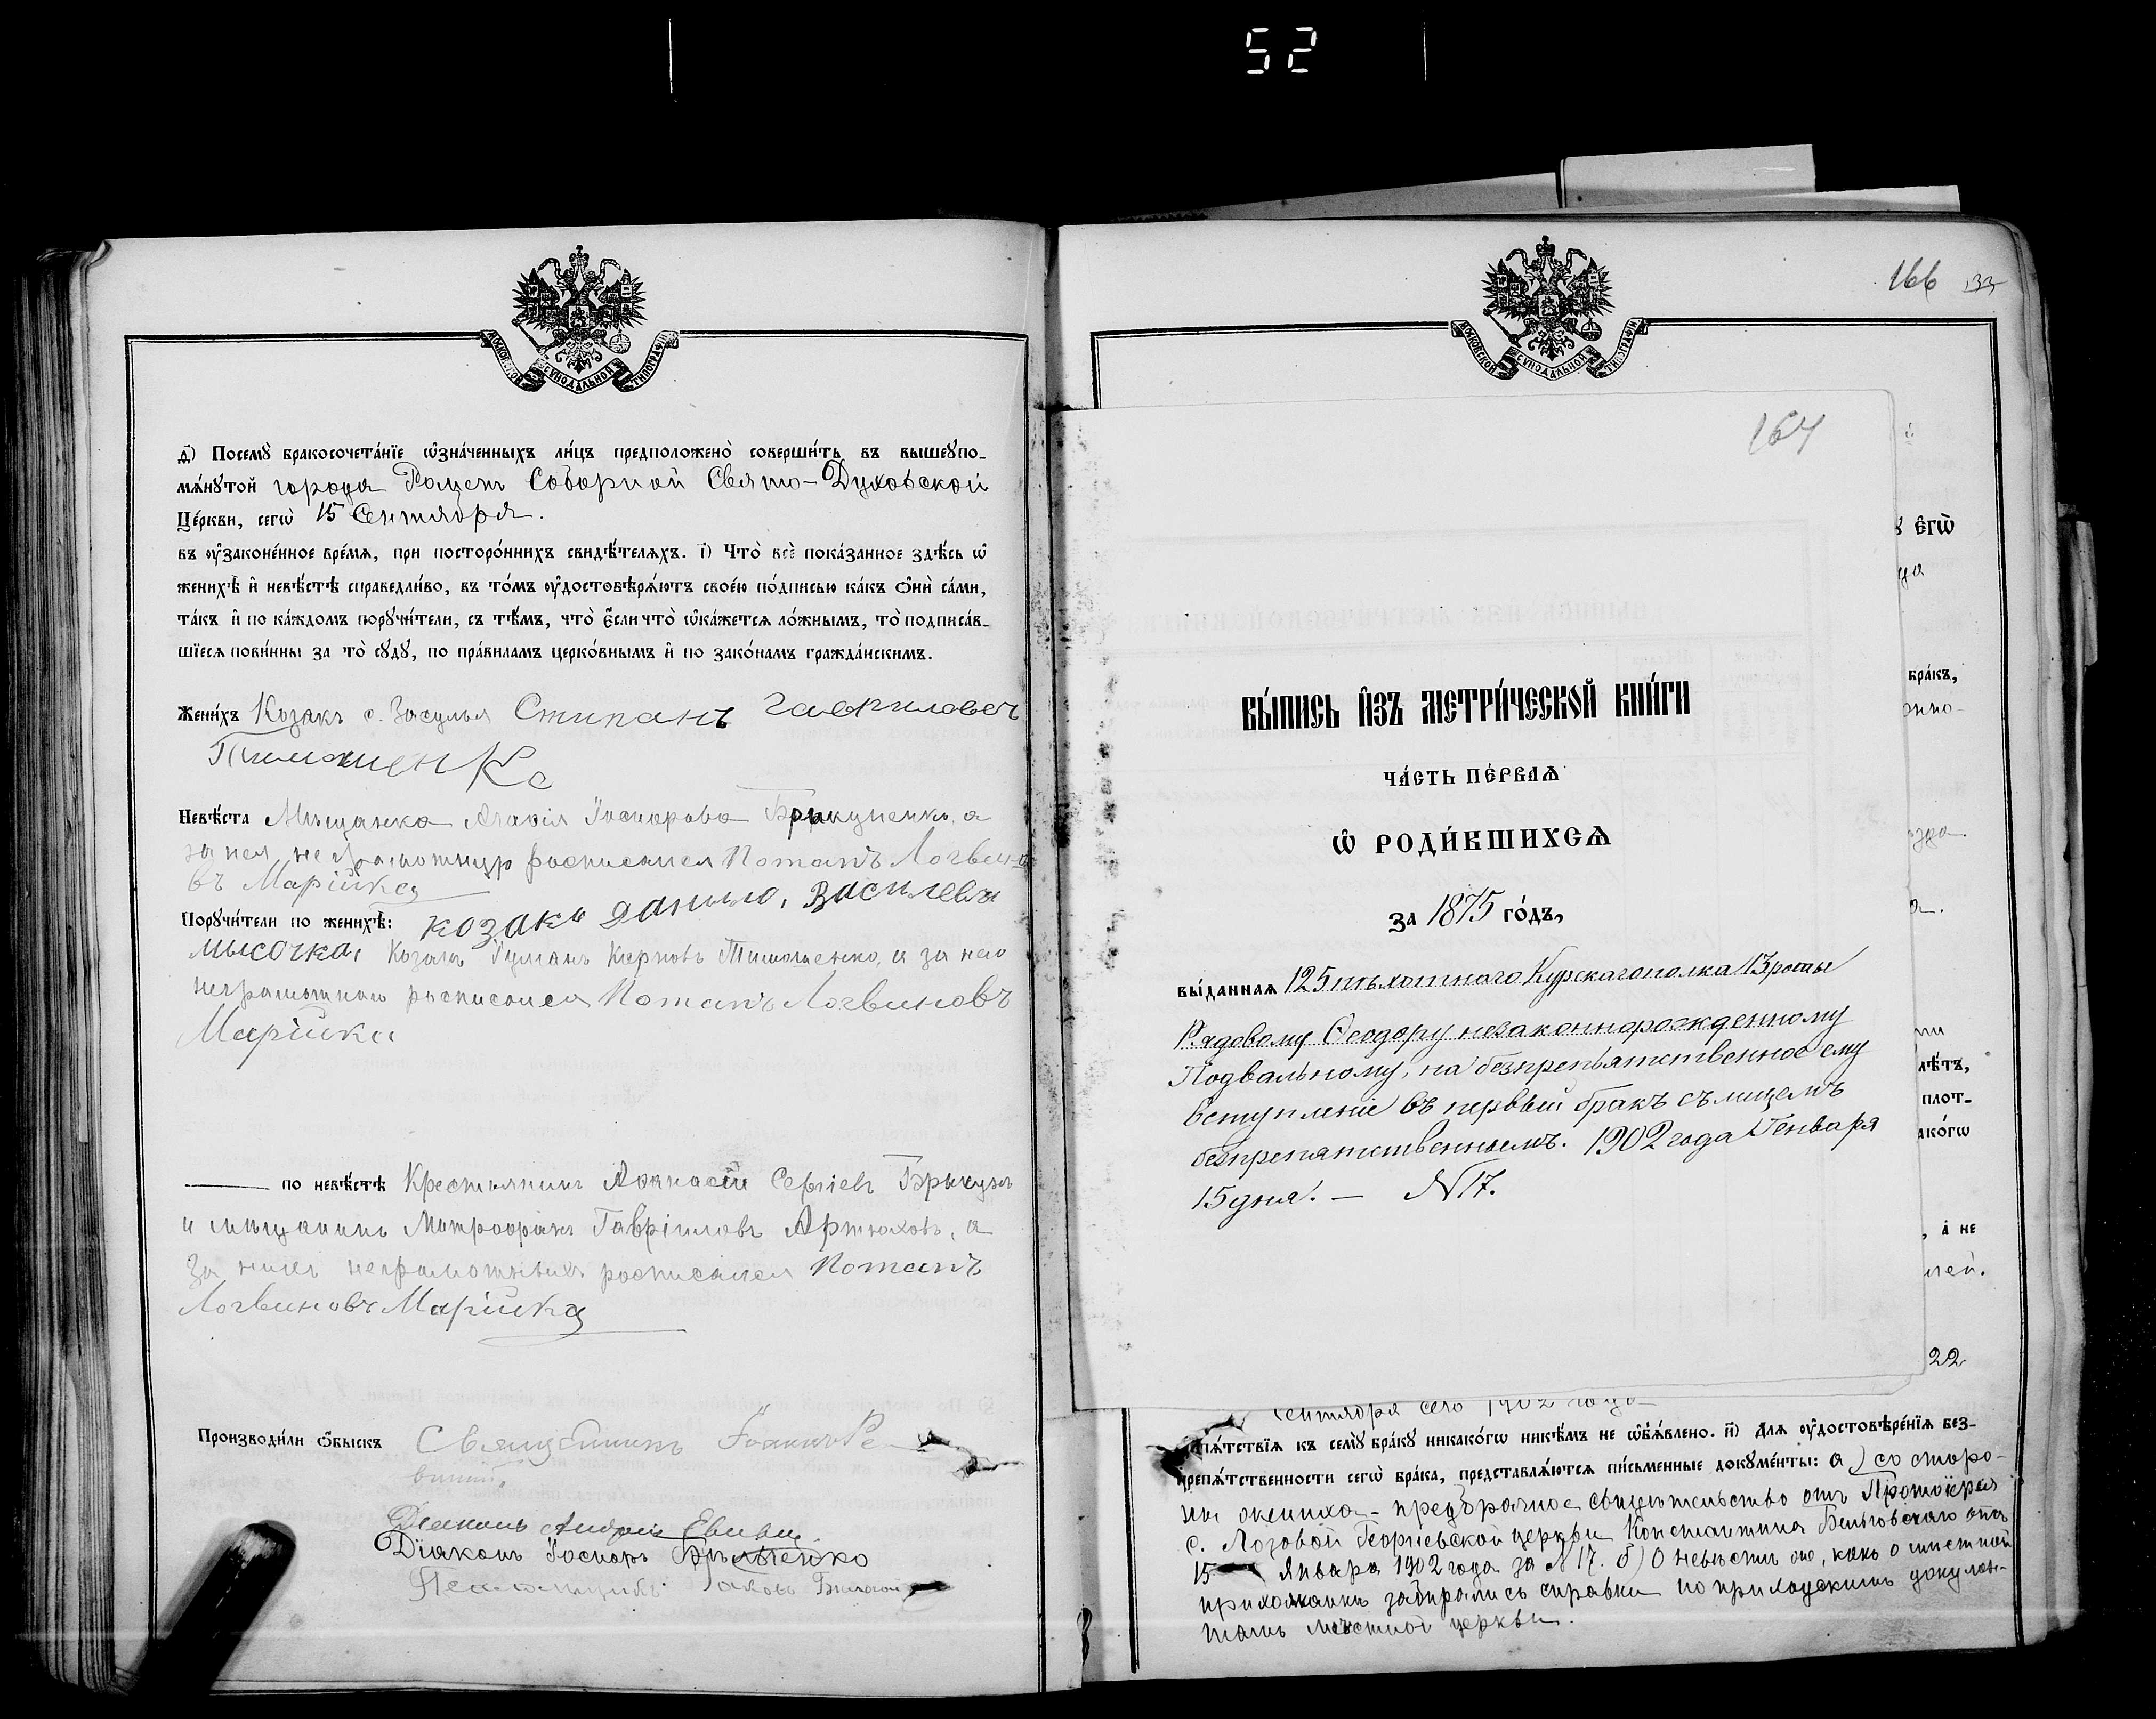 52
МОСКОВСКОЙ СѴНОДАЛЬНОЙ ТИПОГРАФІИ
д҃) Посемꙋ̀ бракосочета́нїе ѡ҆зна́ченныхъ ли́цъ предположено̀ соверши́ть въ вышеꙋпо-
мѧ́нꙋтой города Роменъ Соборной Свято-Духовской
Це́ркви, сегѡ̀ 15 Сентября.
въ ᲂу҆законе́нное вре́мѧ, при посторо́ннихъ свидѣ́телѧхъ. і҃) Что̀ всѐ пока́занное здѣ́сь ѡ҆
женихѣ̀ и҆ невѣ́стѣ справедли́во, въ то́мъ ᲂу҆достовѣрѧ́ютъ свое́ю по́дписью ка́къ ѻ҆нѝ са́ми,
та́къ и҆ по ка́ждомъ порꙋчи́тели, съ тѣ́мъ, что̀ є҆́сли что̀ ѡ҆ка́жетсѧ ло́жнымъ, то̀ подписа́в-
шїесѧ пови́нны за то̀ сꙋдꙋ̀, по пра́виламъ церко́внымъ и҆ по зако́намъ гражда́нскимъ.
Жени́хъ Козакъ с. Засулья Стипанъ Гаврилович
Тимошенко
Невѣ́ста Мѣщанка Агафія Іосифова Брыкуненкъ, а
за нея неграмотную росписался Потапъ Логвино
въ Марійка
Порꙋчи́тели по женихѣ̀: козакъ Данило, Василевъ
мысочка, Козакъ Кирповъ Тимошенко, а за него
неграмотнаго росписался Потапъ Логвиновъ
Марійка
по невѣ́стѣ Крестьянинъ Афанасій Сергіевъ Брыкунъ
и мѣщанинъ Митрофанъ Гавріиловъ Артюховъ, а
за нихъ неграмотныхъ росписался Потапъ
Логвиновъ Марійка
Производи́ли ѻ҆́быскъ Священникъ Іоаннъ
Діаконъ Андрей
Діаконъ Іосифъ
Псаломщикъ Іаковъ
166 133
МОСКОВСКОЙ СѴНОДАЛЬНОЙ ТИПОГРАФІИ
164
ВЫ́ПИСЬ И҆ЗЪ МЕТРИ́ЧЕСКОЙ КНИ́ГИ
ЧА́СТЬ ПЕ́РВАѦ
Ѡ҆ РОДИ́ВШИХСѦ
за 1875 го́дъ,
вы́даннаѧ 125 пѣхотнаго Курскаго полка 13 роты
Рядовому Ѳеодору незаконнорожденному
Подвальному, на безпрепятственное ему
вступленіе въ первый бракъ съ лицемъ
безпрепятственнымъ. 1902 года Генваря
15 дня. — N 17.
ꙋ є҆гѡ̀
бра́къ,
лѣ́тъ,
плот-
ако́гѡ
, а҆ не
22
Сентября сего 1902 года
пѧ́тствїѧ къ семꙋ̀ бра́кꙋ никако́гѡ никѣ́мъ не ѡ҆б̾ѧ́влено. и҃) Длѧ ᲂу҆достовѣре́нїѧ без-
препѧ́тственности сегѡ̀ бра́ка, представлѧ́ютсѧ пи́сьменные докꙋме́нты: а) со сторо-
ны жениха - предбрачное свидѣтельство отъ Протоіерея
с. Лозовой Георгіевской церкви Константина отъ
15 Января 1902 года за N 17. б) О невѣстѣ же, какъ о мѣстной
прихожанкѣ забирались справки по приходскимъ докумен-
тамъ мѣстной церкви.